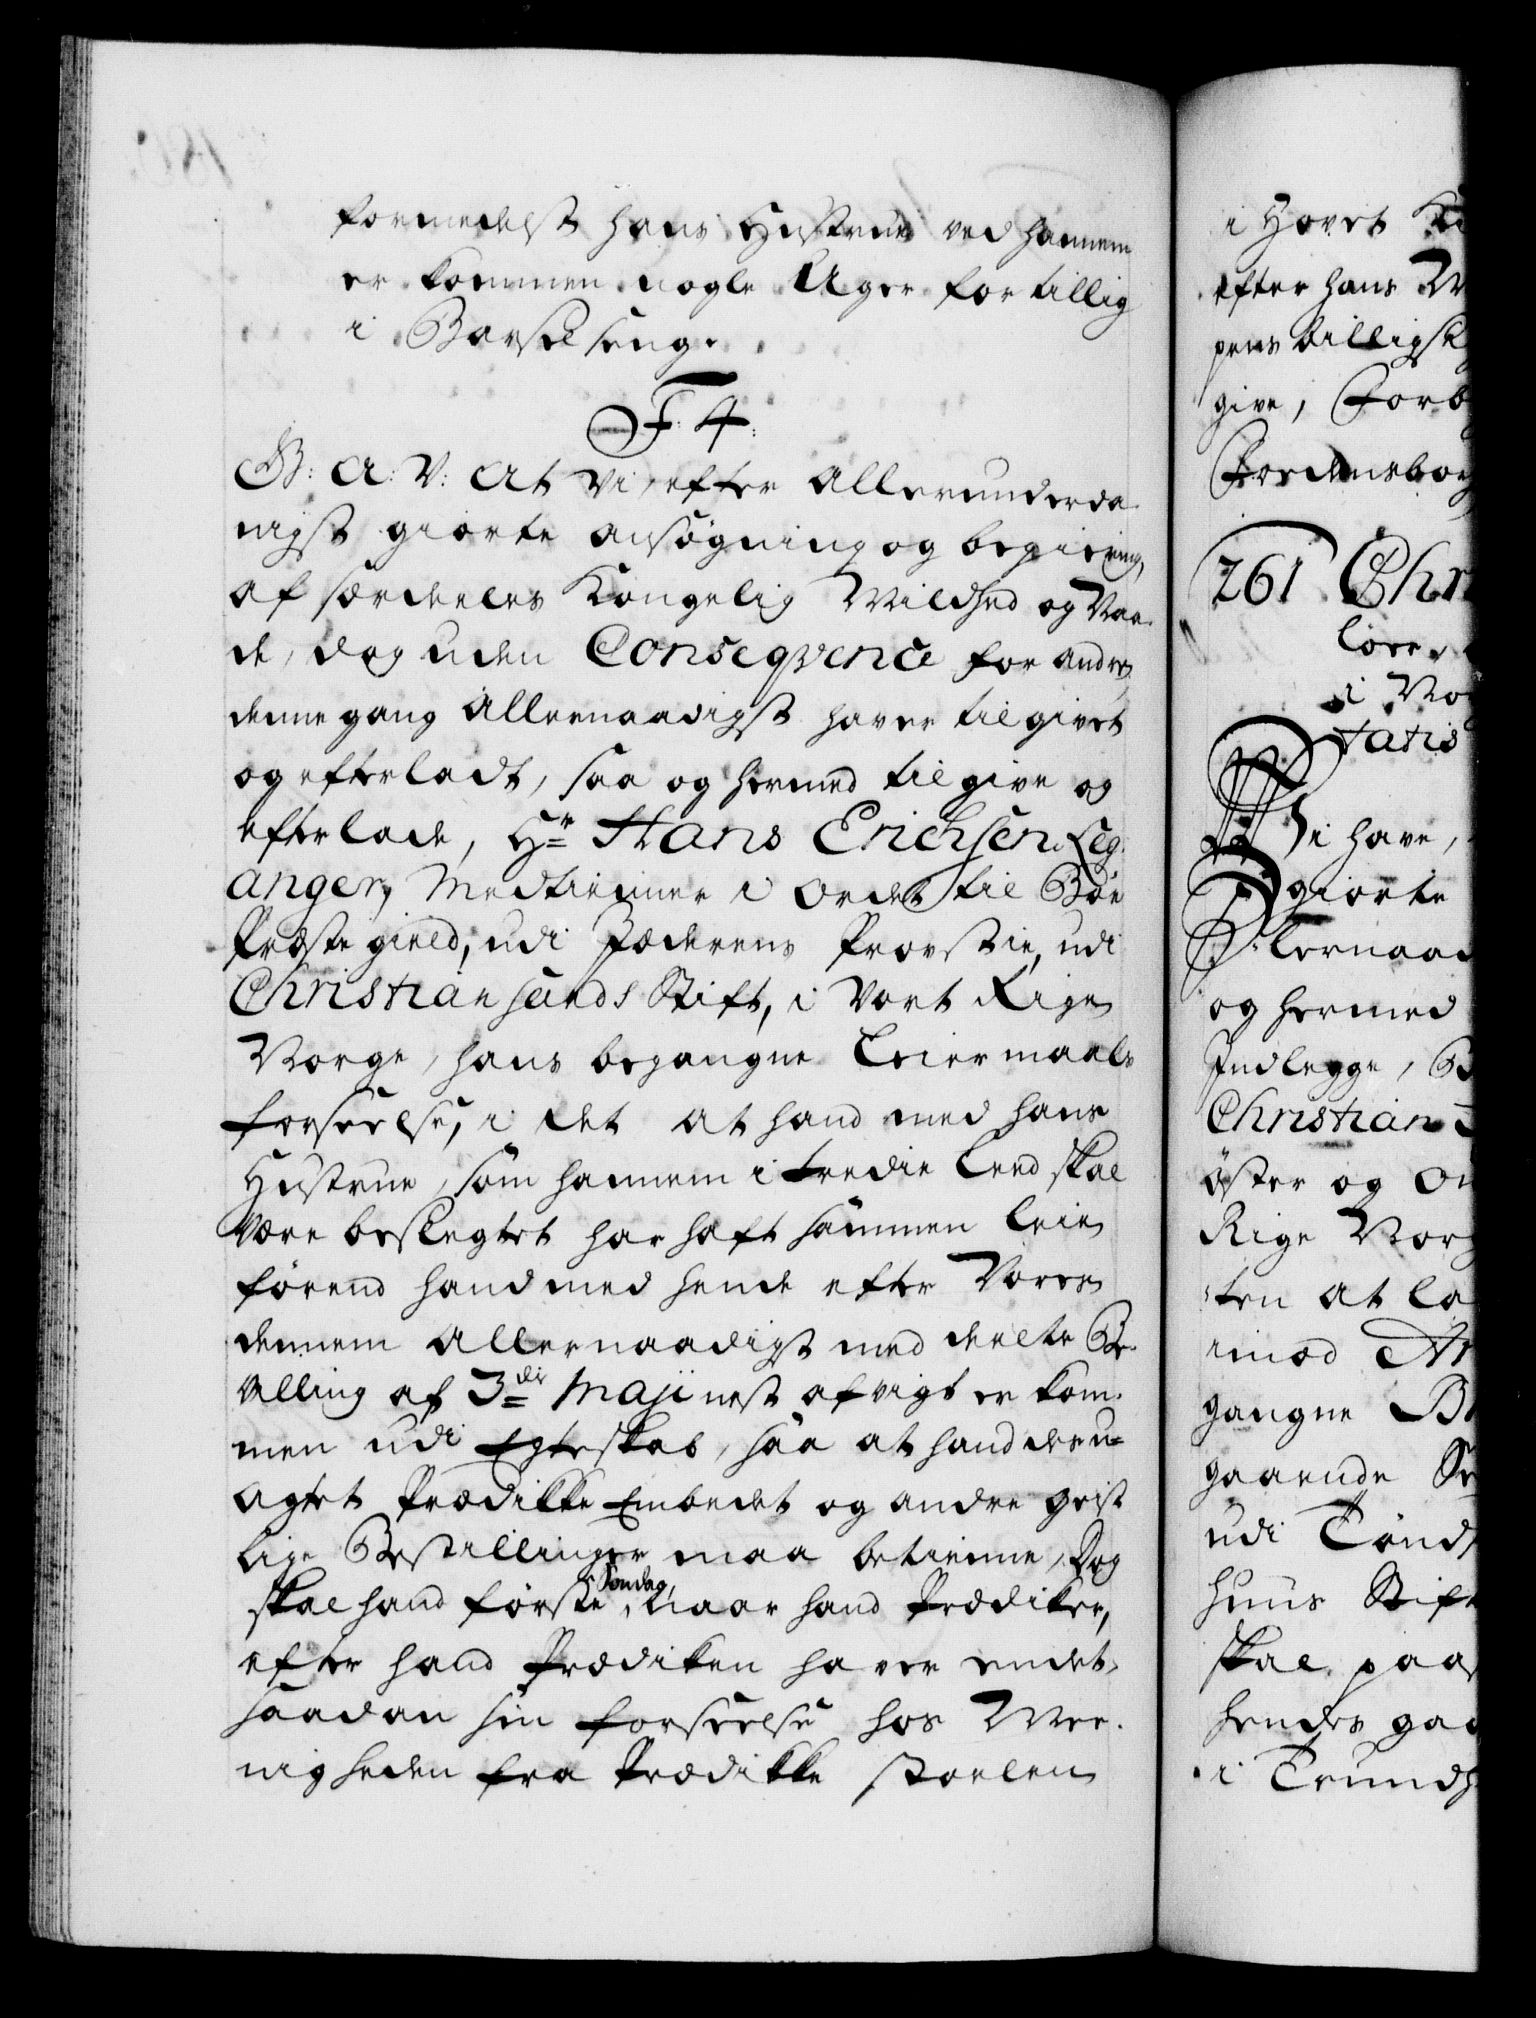 formedelst hans Hustrue ved hannem
er kommen nogle Uger for tillig
i Barselseng.
F. 4.
G: A: V: At Vi, efter Allerunderda-
nigst giorte ansøgning og begiering,
af særdeeles Kongelig Mildhed og Naa-
de, dog uden Conseqvence for andre,
denne gang Allernaadigst haver tilgivet
og efterladt, saa og hermed tilgive og
efterlade, Hr Hans Erichsen Leg-
anger, Medtienner i Ordet til Bøe
Præstegield, udi Jæderens Provstie, udi
Christiansands Stift, i Vort Rige
Norge, hans begangne Leiermaals
forseelse, i det at hand med hans
Hustrue, som hannem i tredie Leed skal
være beslegtet har haft sammen leie
førend hand med hende efter Vores
dennem Allernaadigst meddeelte Be-
villing af 3die Maji nest afvigt er kom-
men udi Egteskab, saa at hand desu-
agtet Prædikke Embedet og andre geist
lige Bestillinger maa betienne, Dog
skal hand første Søndag, naar hand Prædiker,
efter hand Prædiken haver endet,
saadan sin forseelse hos Mee-
nigheden fra Prædikke stoelen
i Hovet Ki
efter hans M
pens billigst
give, Forb
Fredensborg
261 Chr
lóer,
i No
tatis
Vi have,
giorte
Allernaad
og hermed
Indlegge, B
Christian
øster og
Rige Norg
ten at la
imod Ar
gangne Br
gaaende Se
udi Tønd
huus Stift
skal paa
hendes gaa
i Trundh